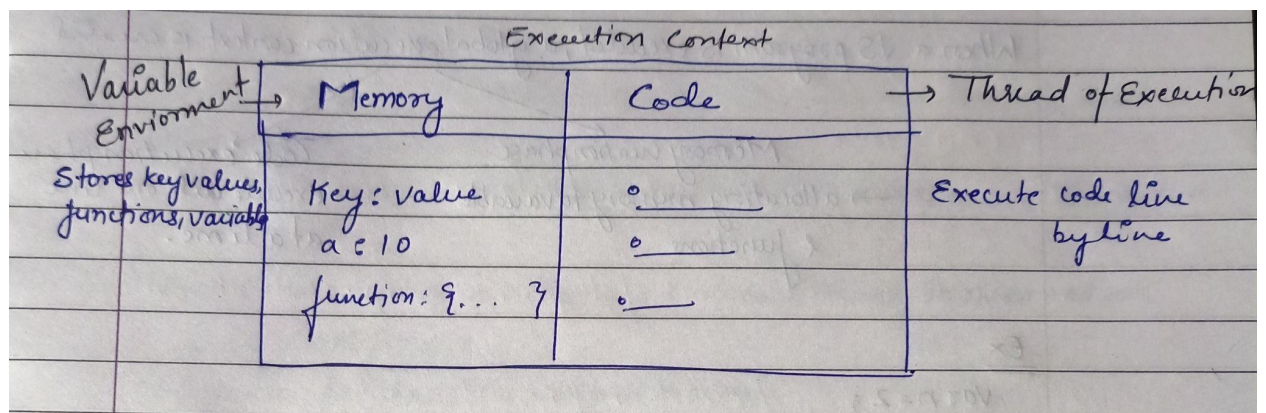 Execution Context
Variable Enviorment → Memory
Code → Thread of Execution
Stores key values, functions, variables
Key: value
a: 10
function: {... }
Execute code line
by line